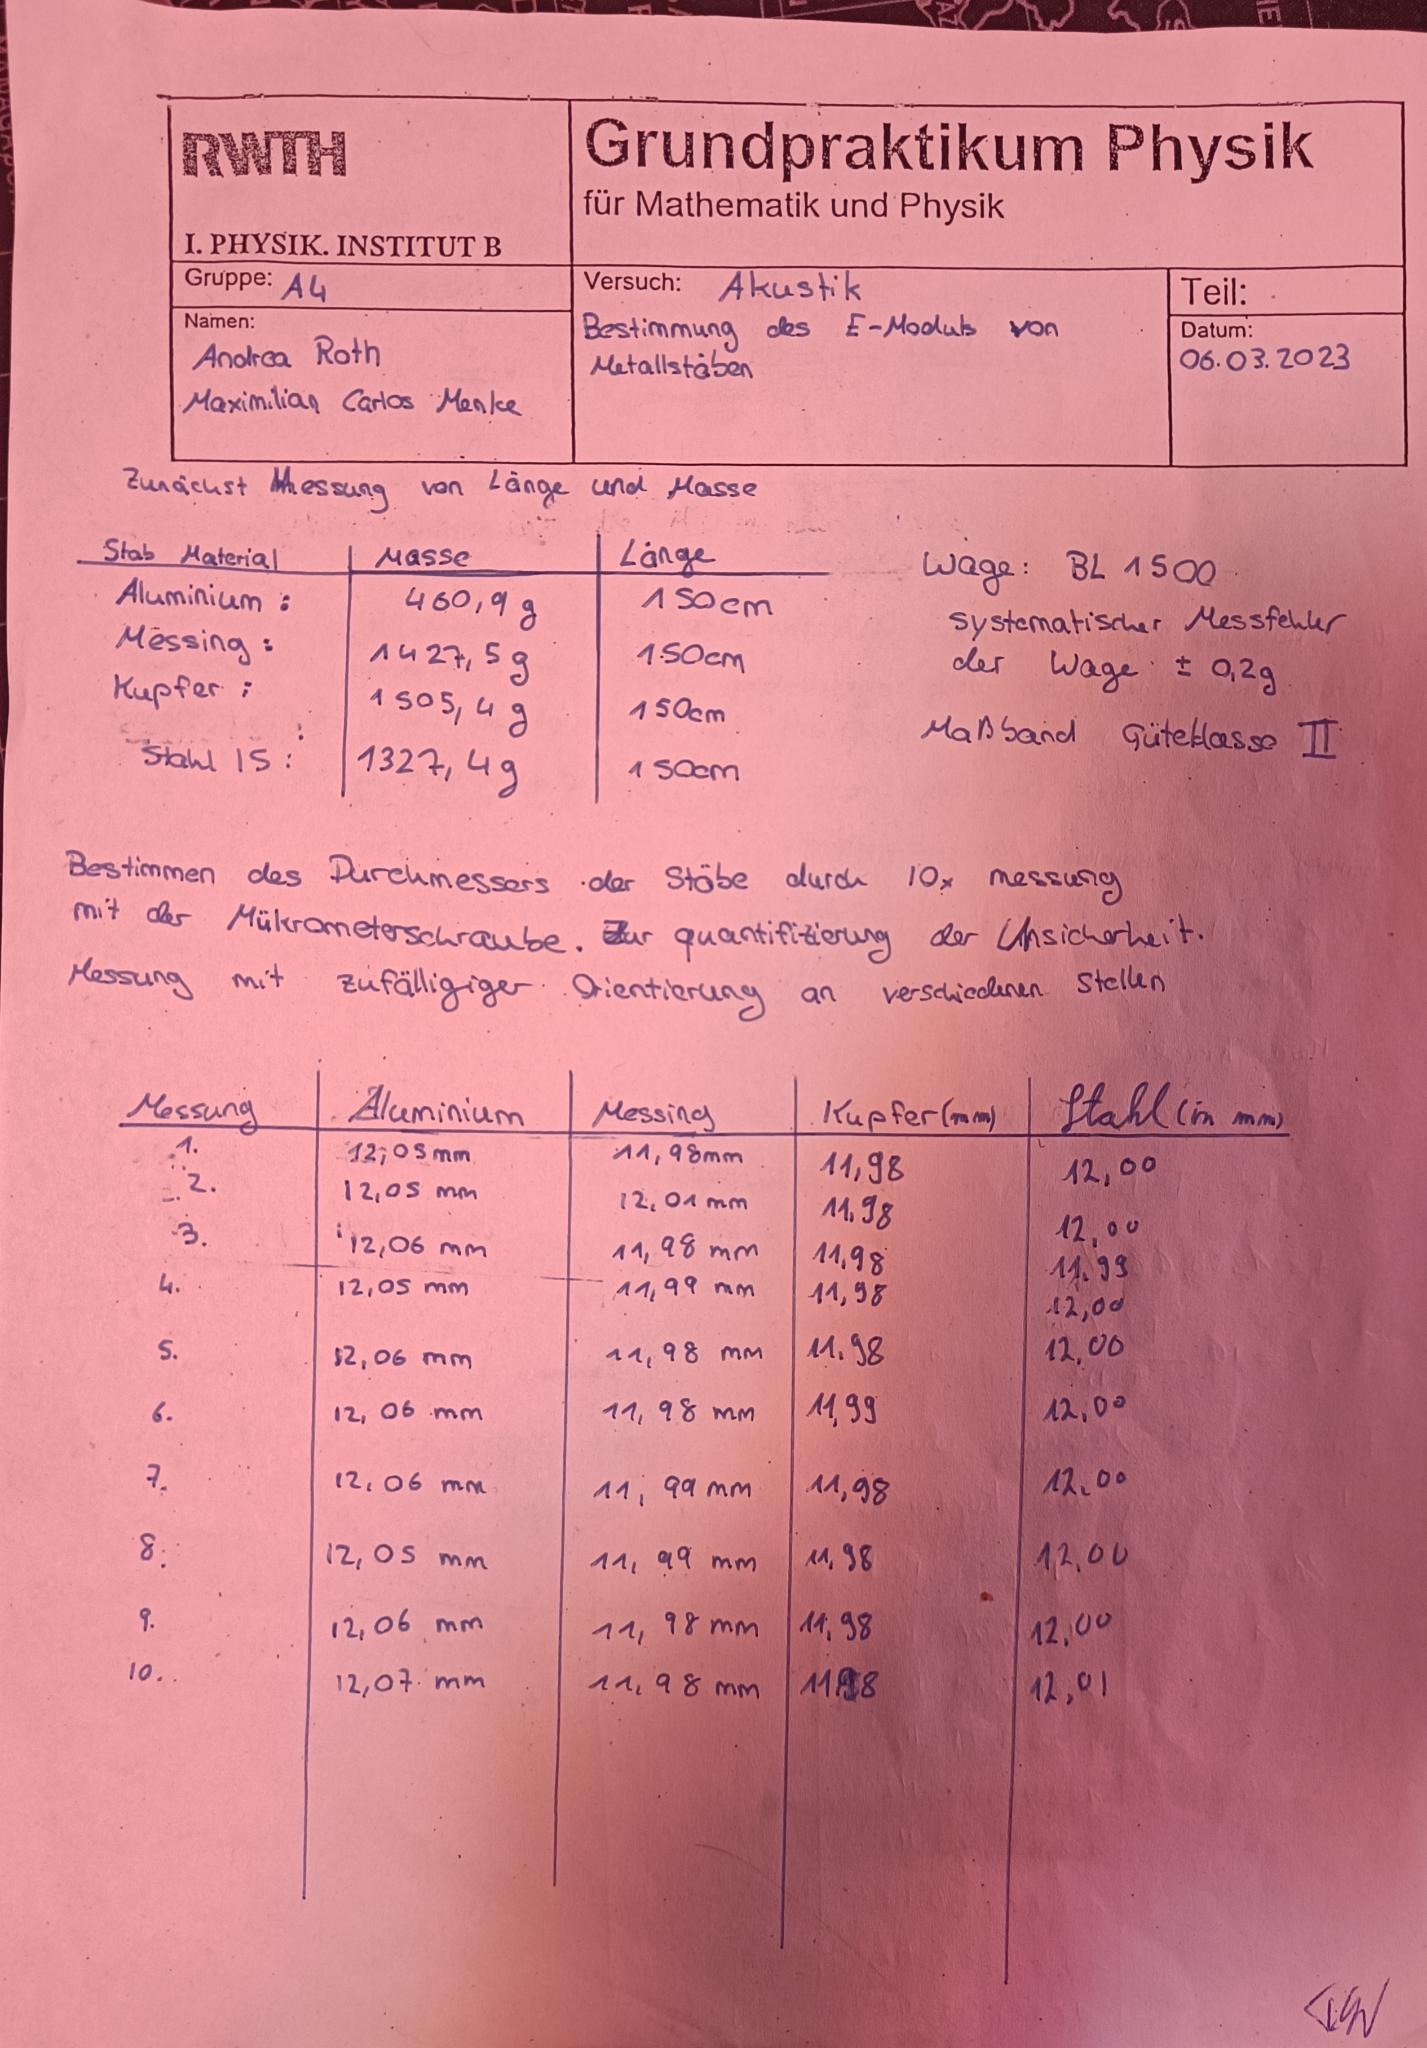 RWTH
I. PHYSIK. INSTITUT B
Grundpraktikum Physik
für Mathematik und Physik
Gruppe: A4
Namen:
Andrea Roth
Maximilian Carlos Menke
Versuch: Akustik
Bestimmung des E-Moduls von
Metallstäben
Teil:
Datum:
06.03.2023
Zunächst Messung von Länge und Masse
Stab Material Masse Länge
Aluminium: 460,9 g 150cm
Messing: 1427,5 g 150cm
Kupfer: 1505,4 g 150cm
Stahl 15: 1327,4g 150cm
Wage: BL 1500
systematischer Messfehler
der Wage ± 0,2g
Maßband Güteklasse II
Bestimmen des Durchmessers der Stäbe durch 10x messung
mit der Mükrometerschraube. Zur quantifizierung der Unsicherheit.
Messung mit zufälligiger Orientierung an verschiedenen Stellen
Messung Aluminium Messing Kupfer (mm) Stahl (in mm)
1. 12,05 mm 11,98mm 11,98 12,00
2. 12,05 mm 12,01 mm 11,98 12,00
3. 12,06 mm 11,98 mm 11,98 11,99
4. 12,05 mm 11,99 mm 11,98 12,00
5. 12,06 mm 11,98 mm 11,98 12,00
6. 12,06 mm 11,98 mm 11,99 12,00
7. 12,06 mm 11,99 mm 11,98 12,00
8. 12,05 mm 11,99 mm 11,98 12,00
9. 12,06 mm 11,98 mm 11,98 12,00
10. 12,07 mm 11,98 mm 11,98 12,01